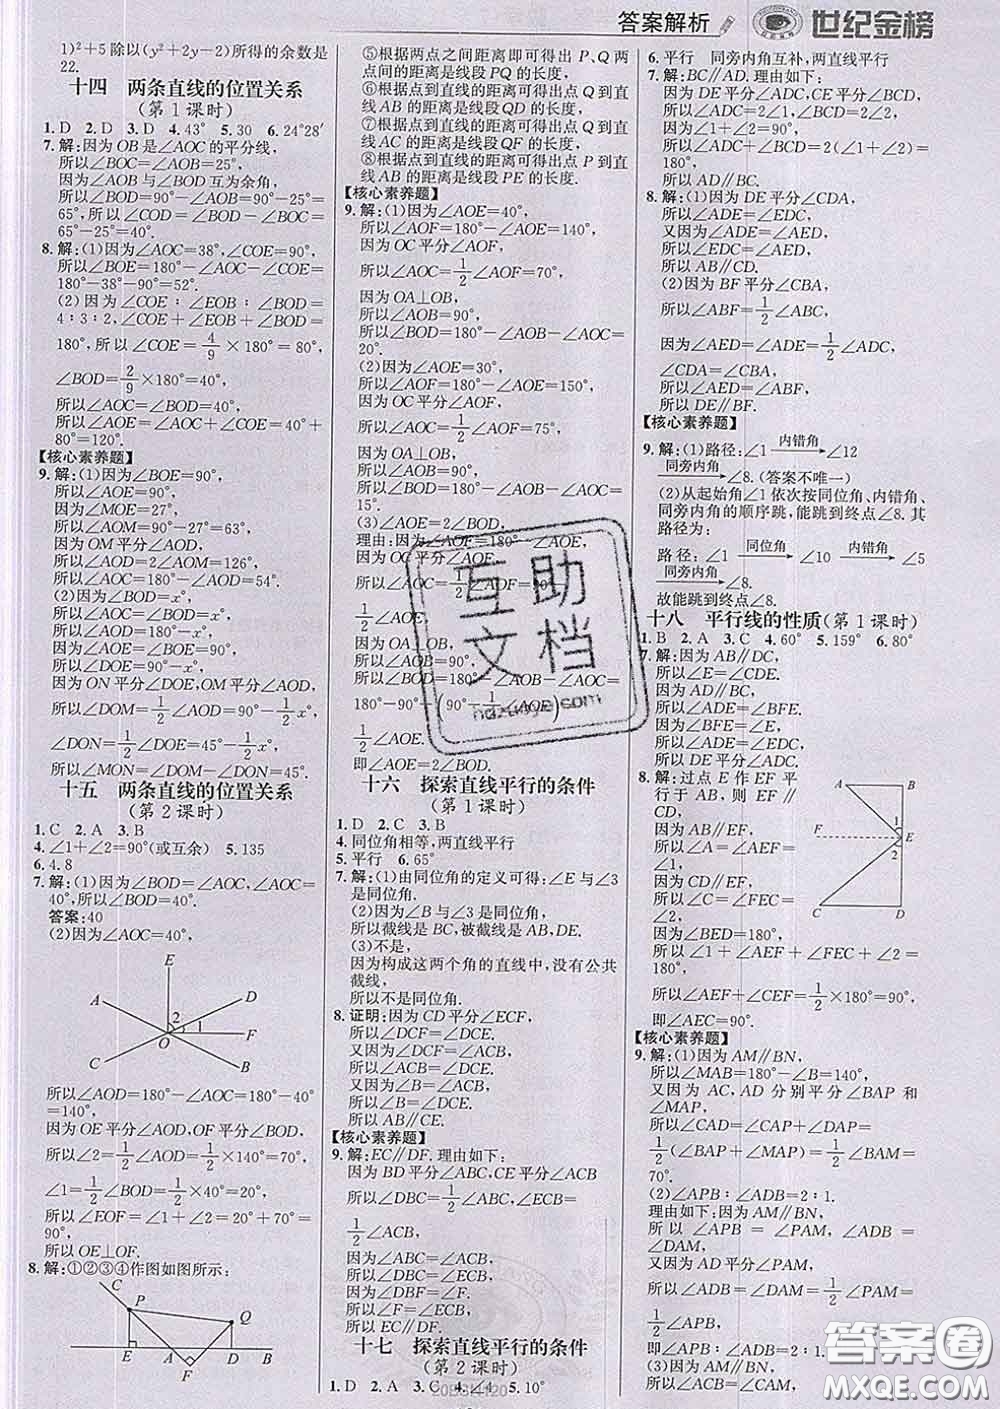 答案解析
世纪金榜
1)²+5除以(y²+2y-2)所得的余数是
22.
十四 两条直线的位置关系
(第1课时)
1.D 2.D 3.D 4.43° 5.30 6.24°28′
7.解:因为OB是∠AOC的平分线,
所以∠BOC=∠AOB=25°,
因为∠AOB与∠BOD互为余角,
所以∠BOD=90°-∠AOB=90°-25°=
65°,所以∠COD=∠BOD-∠BOC=
65°-25°=40°.
8.解:(1)因为∠AOC=38°,∠COE=90°,
所以∠BOE=180°-∠AOC-∠COE=
180°-38°-90°=52°.
(2)因为∠COE∶∠EOB∶∠BOD=
4∶3∶2,∠COE+∠EOB+∠BOD=
180°,所以∠COE=4/9×180°=80°,
∠BOD=2/9×180°=40°,
所以∠AOC=∠BOD=40°,
所以∠AOE=∠AOC+∠COE=40°+
80°=120°.
【核心素养题】
9.解:(1)因为∠BOE=90°,
所以∠AOE=90°,
因为∠MOE=27°,
所以∠AOM=90°-27°=63°,
因为OM平分∠AOD,
所以∠AOD=2∠AOM=126°,
所以∠AOC=180°-∠AOD=54°.
(2)因为∠BOD=x°,
所以∠AOD=180°-x°,
因为∠BOE=90°,
所以∠DOE=90°-x°,
因为ON平分∠DOE,OM平分∠AOD,
所以∠DOM=1/2∠AOD=90°-1/2x°,
∠DON=1/2∠DOE=45°-1/2x°,
所以∠MON=∠DOM-∠DON=45°.
十五 两条直线的位置关系
(第2课时)
1.C 2.A 3.B
4.∠1+∠2=90°(或互余) 5.135
6.4.8
7.解:(1)因为∠BOD=∠AOC,∠AOC=
40°,所以∠BOD=40°.
答案:40
(2)因为∠AOC=40°,
E
A D
2 1 F
O
C B
所以∠AOD=180°-∠AOC=180°-40°
=140°,
因为OE平分∠AOD,OF平分∠BOD,
所以∠2=1/2∠AOD=1/2×140°=70°,
∠1=1/2∠BOD=1/2×40°=20°,
所以∠EOF=∠1+∠2=20°+70°=
90°,
所以OE⊥OF.
8.解:①②③④作图如图所示:
C
P Q
E A D B
F
⑤根据两点之间的距离即可得出P、Q两
点间的距离是线段PQ的长度,
⑥根据点到直线的距离可得出点Q到直
线AB的距离是线段QD的长度,
⑦根据点到直线的距离可得出点Q到直
线AC的距离是线段QF的长度,
⑧根据点到直线的距离可得出点P到直
线AB的距离是线段PE的长度.
【核心素养题】
9.解:(1)因为∠AOE=40°,
所以∠AOF=180°-∠AOE=140°,
因为OC平分∠AOF,
所以∠AOC=1/2∠AOF=70°,
因为OA⊥OB,
所以∠AOB=90°,
所以∠BOD=180°-∠AOB-∠AOC=
20°.
(2)因为∠AOE=30°,
所以∠AOF=180°-∠AOE=150°,
因为OC平分∠AOF,
所以∠AOC=1/2∠AOF=75°,
因为OA⊥OB,
所以∠AOB=90°,
所以∠BOD=180°-∠AOB-∠AOC=
15°.
(3)∠AOE=2∠BOD,
理由:因为∠AOF=180°-∠AOE,
因为OC平分∠AOF,
所以∠AOC=1/2∠AOF=90°-
1/2∠AOE,
因为OA⊥OB,
所以∠AOB=90°,
所以∠BOD=180°-∠AOB-∠AOC=
180°-90°-(90°-1/2∠AOE)=
1/2∠AOE.
即∠AOE=2∠BOD.
十六 探索直线平行的条件
(第1课时)
1.D 2.C 3.B
4.同位角相等,两直线平行
5.平行 6.65°
7.解:(1)由同位角的定义可得:∠E与∠3
是同位角.
(2)因为∠B与∠3是同位角,
所以截线是BC,被截线是AB,DE.
(3)不是,
因为构成这两个角的直线中,没有公共
截线,
所以不是同位角.
8.证明:因为CD平分∠ECF,
所以∠DCF=∠DCE.
又因为∠DCF=∠ACB,
所以∠DCE=∠ACB.
又因为∠B=∠ACB,
所以∠B=∠DCE,
所以AB∥CE.
【核心素养题】
9.解:EC∥DF.理由如下:
因为BD平分∠ABC,CE平分∠ACB,
所以∠DBC=1/2∠ABC,∠ECB=
1/2∠ACB,
因为∠ABC=∠ACB,
所以∠DBC=∠ECB,
因为∠DBF=∠F.
所以∠F=∠ECB,
所以EC∥DF.
十七 探索直线平行的条件
(第2课时)
1.D 2.A 3.C 4.∠4 5.10°
6.平行 同旁内角互补,两直线平行
7.解:BC∥AD.理由如下:
因为DE平分∠ADC,CE平分∠BCD,
所以∠ADC=2∠1,∠BCD=2∠2,
因为∠1+∠2=90°,
所以∠ADC+∠BCD=2(∠1+∠2)=
180°,
所以AD∥BC.
8.解:(1)因为DE平分∠CDA,
所以∠ADE=∠EDC,
又因为∠ADE=∠AED,
所以∠EDC=∠AED,
所以AB∥CD.
(2)因为BF平分∠CBA,
所以∠ABF=1/2∠CBA,
因为∠AED=∠ADE=1/2∠ADC,
∠CDA=∠CBA,
所以∠AED=∠ABF,
所以DE∥BF.
【核心素养题】
9.解:(1)路径:∠1 内错角 ∠12
同旁内角 ∠8.(答案不唯一)
(2)从起始角∠1依次按同位角、内错角、
同旁内角的顺序跳,能跳到终点∠8.其
路径为:
路径:∠1 同位角 ∠10 内错角 ∠5
同旁内角 ∠8.
故能跳到终点∠8.
十八 平行线的性质(第1课时)
1.B 2.A 3.C 4.60° 5.159° 6.80°
7.解:因为AB∥DC,
所以∠E=∠CDE.
因为DE平分∠ADC,
所以∠ADE=∠CDE.
所以∠ADE=∠BFE.
因为∠BFE=∠E,
所以∠ADE=∠BFE.
所以AD∥BC.
8.解:过点E作EF平
行于AB,则EF∥
CD,
因为AB∥EF,
所以∠A=∠AEF=
∠1,
因为CD∥EF,
所以∠C=∠FEC=
∠2,
因为∠BED=180°,
所以∠1+∠AEF+∠FEC+∠2=
180°,
所以∠AEF+∠CEF=1/2×180°=90°,
即∠AEC=90°.
A B
1
F E
2
C D
【核心素养题】
9.解:(1)因为AM∥BN,
所以∠MAB=180°-∠B=140°,
又因为AC,AD分别平分∠BAP和
∠MAP,
所以∠CAD=∠CAP+∠DAP=
1/2(∠BAP+∠MAP)=1/2∠MAB=
70°.
(2)∠APB∶∠ADB=2∶1.
理由如下:因为AM∥BN,
所以∠APB=∠PAM,∠ADB=
∠DAM,
又因为∠DAM=1/2∠PAM,
所以∠ADB=∠DAM=1/2∠PAM=
1/2∠APB,
即∠APB∶∠ADB=2∶1.
互助
文档
答案圈
MXQE.COM